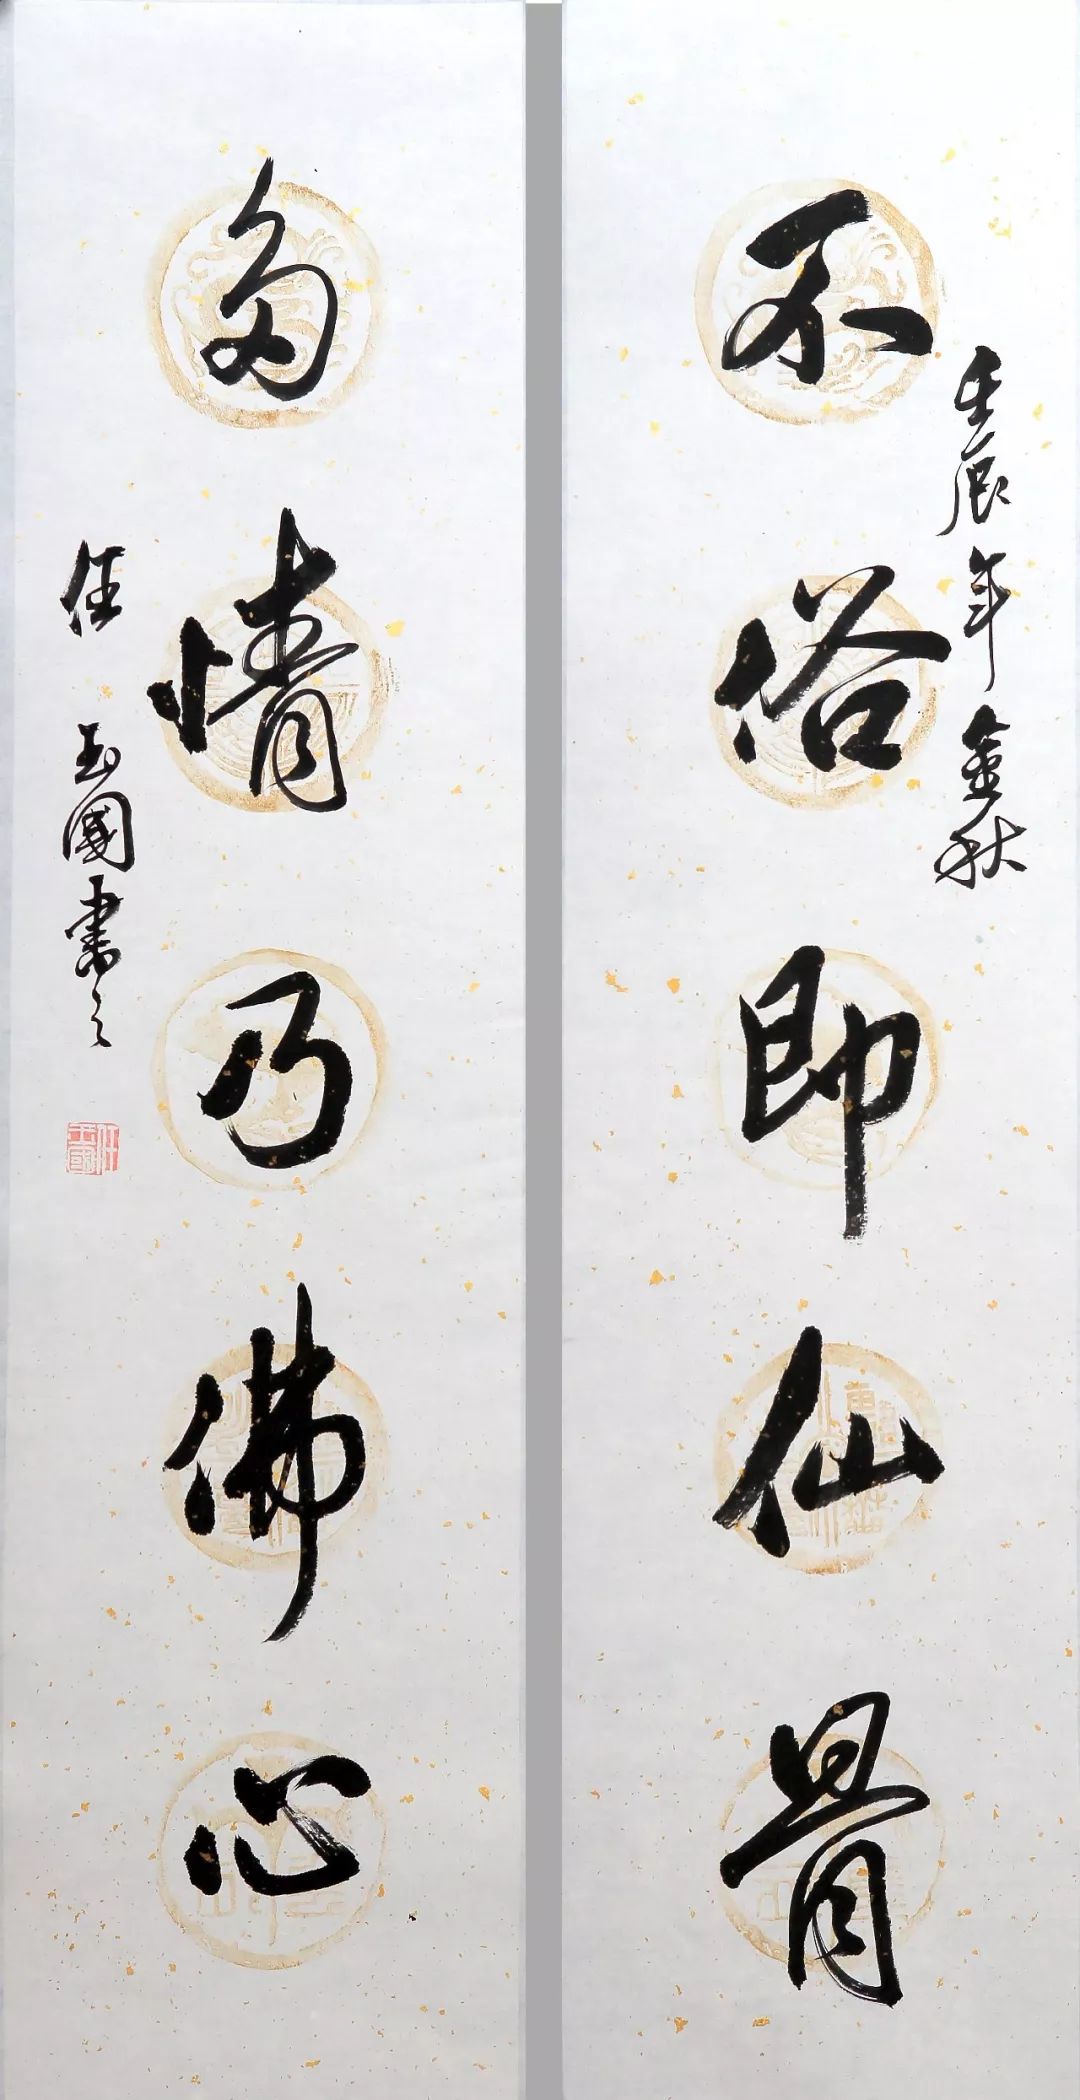 壬辰年金秋
不俗即仙骨
多情乃佛心
任玉國書之
任玉國